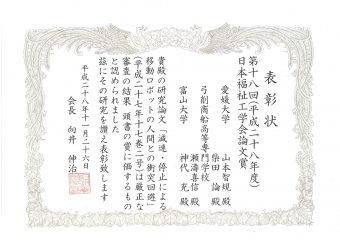 表彰状
第十八回(平成二十八年度)
日本福祉工学会論文賞
愛媛大学
山本智規殿
柴田論殿
弓削商船高等専門学校
瀬濤喜信殿
富山大学
神代充殿
貴殿の研究論文「減速・停止による
移動ロボットの人間との衝突回避」
(平成二十七年十七巻二号)は厳正な
審査の結果 頭書の賞に価するもの
と認められました
茲にその研究を讃え表彰致します
平成二十八年十一月二十六日
会長 向井 伸治